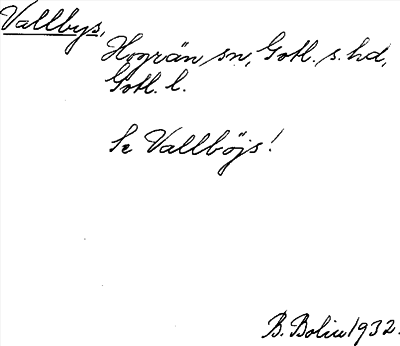 Vallbys,
Hogrän sn, Gotl. s. hd,
Gotl. l.
Se Vallböjs!
B. Bolin 1932.